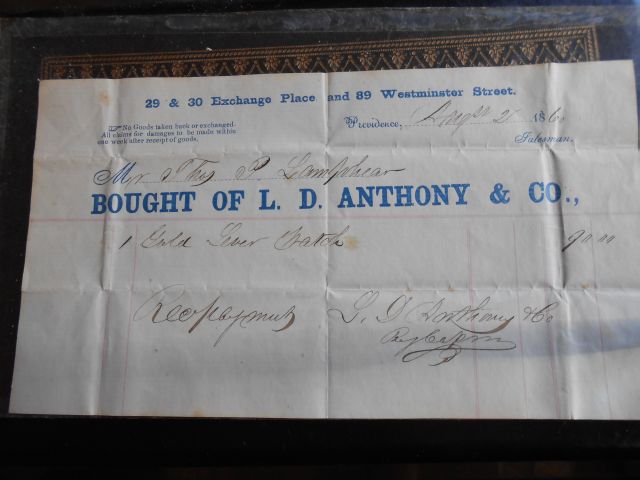 29 & 30 Exchange Place and 89 Westminster Street.
☞ No Goods taken back or exchanged.
All claims for damages to be made within
one week after receipt of goods.
Providence, 1860
Salesman.
Mr Thos P. Lamphear
BOUGHT OF L. D. ANTHONY & CO.,
1 Gold Lever Watch 90.00
Rec payment L. D. Anthony & Co